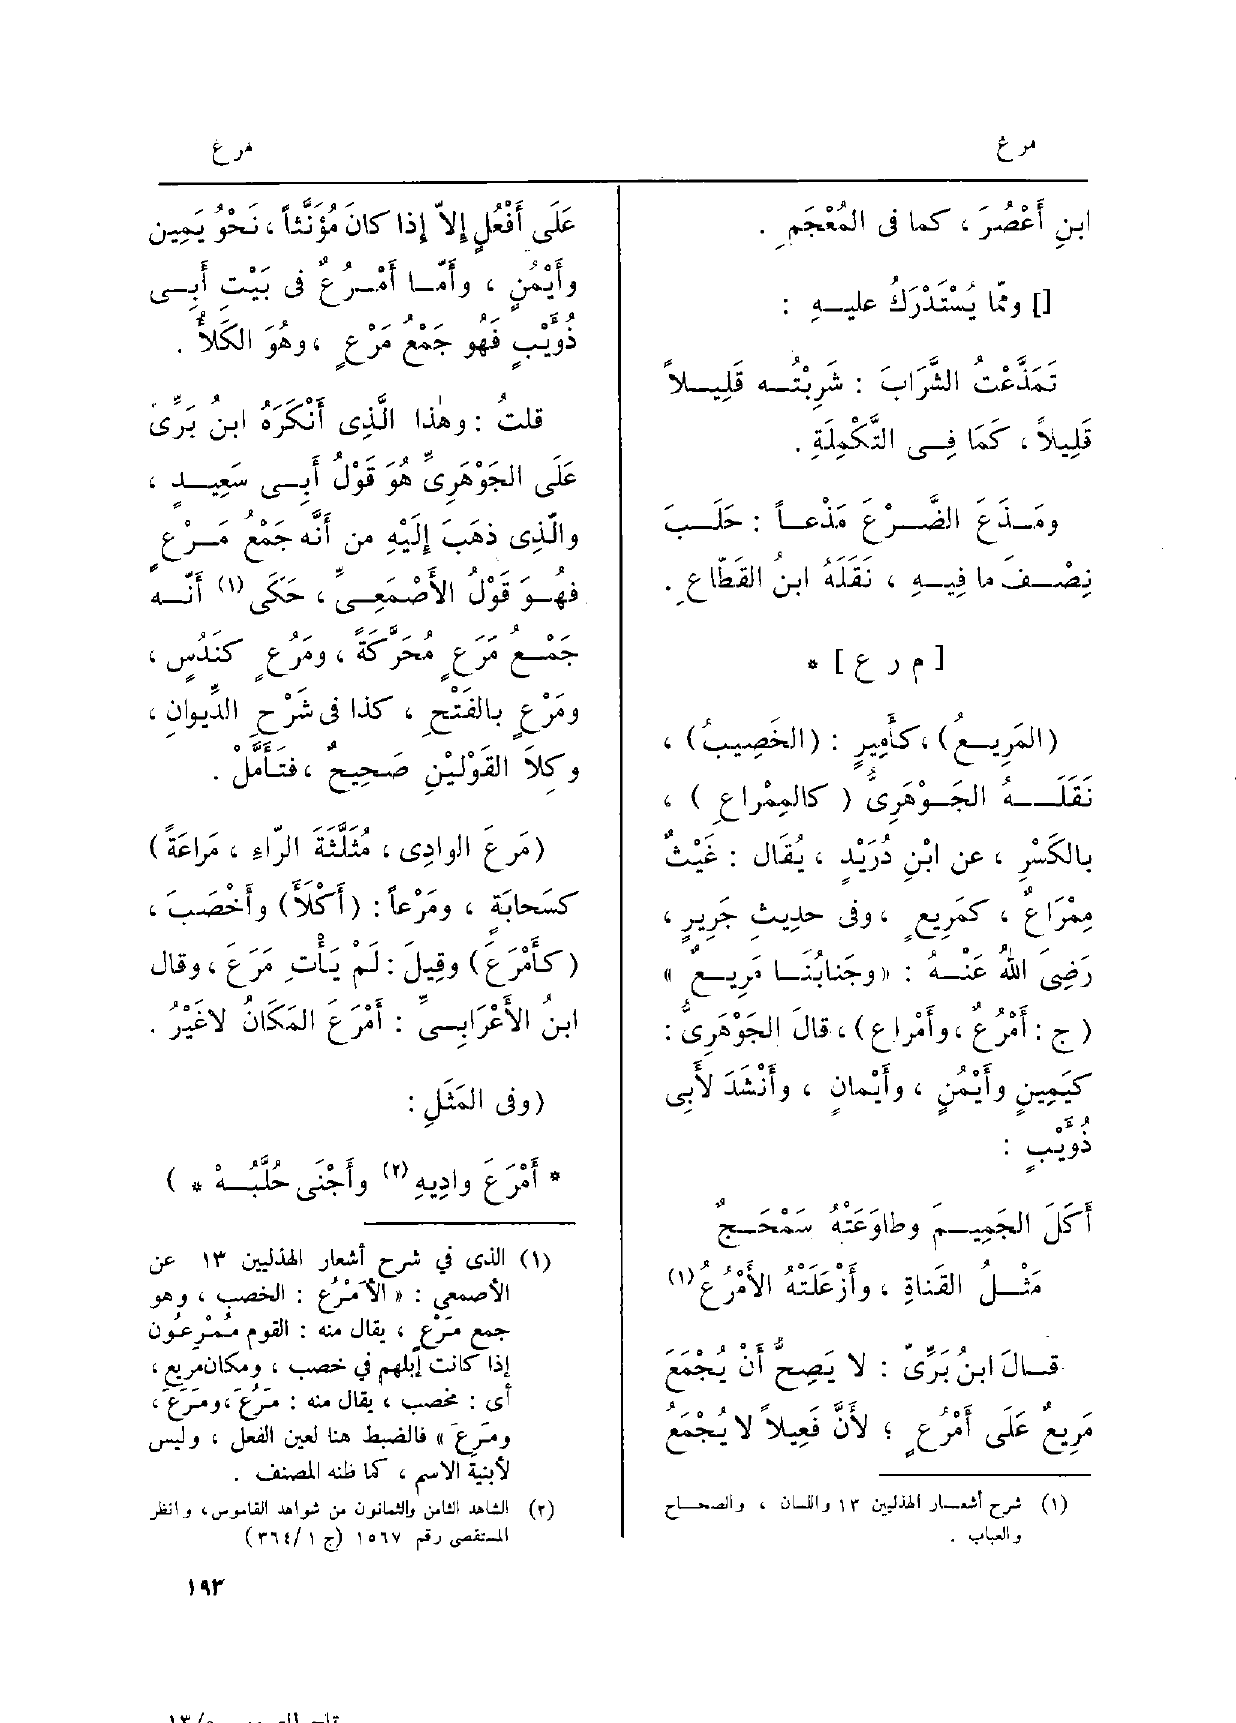 مرع
مرع
ابنِ أَعْصُرَ ، كما فى المُعْجَمِ .
[] وممّا يُسْتَدْرَكُ عليـهِ :
تَمَذَّعْتُ الشَّرَابَ : شَرِبْتُـه قَلِيـلاً
قَلِيلاً ، كَمَا فِـى التَّكْمِلَةِ .
ومَـذَعَ الضَّـرْعَ مَذْعـاً : حَلَـبَ
نِصْـفَ ما فِيـهِ ، نَقَلَهُ ابنُ القَطّاعِ .
[ م ر ع ] *
(المَرِيـعُ) ، كأَمِيرٍ : (الخَصِيبُ) ،
نَقَلَــهُ الجَـوْهَرِىُّ ( كالمِمْراعِ ) ،
بالكَسْرِ ، عن ابْنِ دُرَيْدٍ ، يُقَال : غَيْثٌ
مِمْرَاعٌ ، كمَرِيعٍ ، وفى حديثِ جَرِيرٍ ،
رَضِىَ اللهُ عَنْـهُ : «وجَنابُنَـا مَرِيـعٌ »
( ج : أَمْرُعٌ ، وأَمْراع) ، قالَ الجَوْهَرِىُّ :
كيَمِينٍ وأَيْمُنٍ ، وأَيْمانٍ ، وأَنْشَدَ لأَبِى
ذُوَيْبٍ :
أَكَلَ الجَمِيـمَ وطاوَعَتْهُ سَمْحَـجٌ
مَثْـلُ القَناةِ ، وأَزْعَلَتْهُ الأَمْرُعُ (١)
قـالَ ابنُ بَرِّىّ : لا يَصِحُّ أَنْ يُجْمَعَ
مَرِيعٌ عَلَى أَمْرُعٍ ؛ لأَنَّ فَعِيلاً لا يُجْمَعُ
(١) شرح أشعـار الهذليين ١٣ واللسان ، والصحـاح
والعباب .
عَلَى أَفْعُلٍ إِلاّ إِذا كانَ مُؤَنَّثاً ، نَحْوُ يَمِين
وأَيْمُنٍ ، وأَمّـا أَمْـرُعٌ فى بَيْتِ أَبِـى
ذُوَيْبٍ فهُو جَمْعُ مَرْعٍ ، وهُوَ الكَلأُ .
قلتُ : وهٰذا الَّذِى أَنْكَرَهُ ابنُ بَرِّىّ
عَلَى الجَوْهَرِىِّ هُوَ قَوْلُ أَبِـى سَعِيـدٍ ،
والَّذِى ذهَبَ إِلَيْهِ من أَنَّه جَمْعُ مَـرْعٍ
فهُـوَ قَوْلُ الأَصْمَعِـىِّ ، حَكَى (١) أَنّـه
جَمْـعُ مَرَعٍ مُحَرَّكَةً ، ومَرُعٍ كنَدُسٍ ،
ومَرْعٍ بالفَتْحِ ، كذا فى شَرْحِ الدِّيوانِ ،
وكِلاَ القَوْلَيْنِ صَحِيحٌ ، فتَأَمَّلْ .
(مَرعَ الوادِى ، مُثَلَّثَةَ الرّاءِ ، مَراعَةً)
كسَحابَةٍ ، ومَرْعاً : (أَكْلأَ) وأَخْصَبَ ،
(كأَمْرَعَ) وقِيلَ : لَمْ يَأْتِ مَرَعَ ، وقال
ابنُ الأَعْرَابِـىِّ : أَمْرَعَ المَكانُ لاغَيْرُ .
(وفى المَثَلِ :
* أَمْرَعَ وادِيهِ (٢) وأَجْنَى حُلَّبُـهْ * )
(١) الذى في شرح أشعار الهذليين ١٣ عن
الأصمعي : « الأَمْرُع : الخصب ، وهو
جمع مَرْعٍ ، يقال منه : القوم مُمْرِعُون
إذا كانت إبلهم في خصب ، ومكان مريع ،
أى : مخصب ، يقال منه : مَرُعَ ، ومَرَعَ ،
ومَرِعَ » فالضبط هنا لعين الفعل ، وليس
لأبنية الاسم ، كما ظنه المصنف .
(٢) الشاهد الثامن والثمانون من شواهد القاموس ، وانظر
المستقصى رقم ١٥٦٧ (ج ٣٦٤/١)
١٩٣